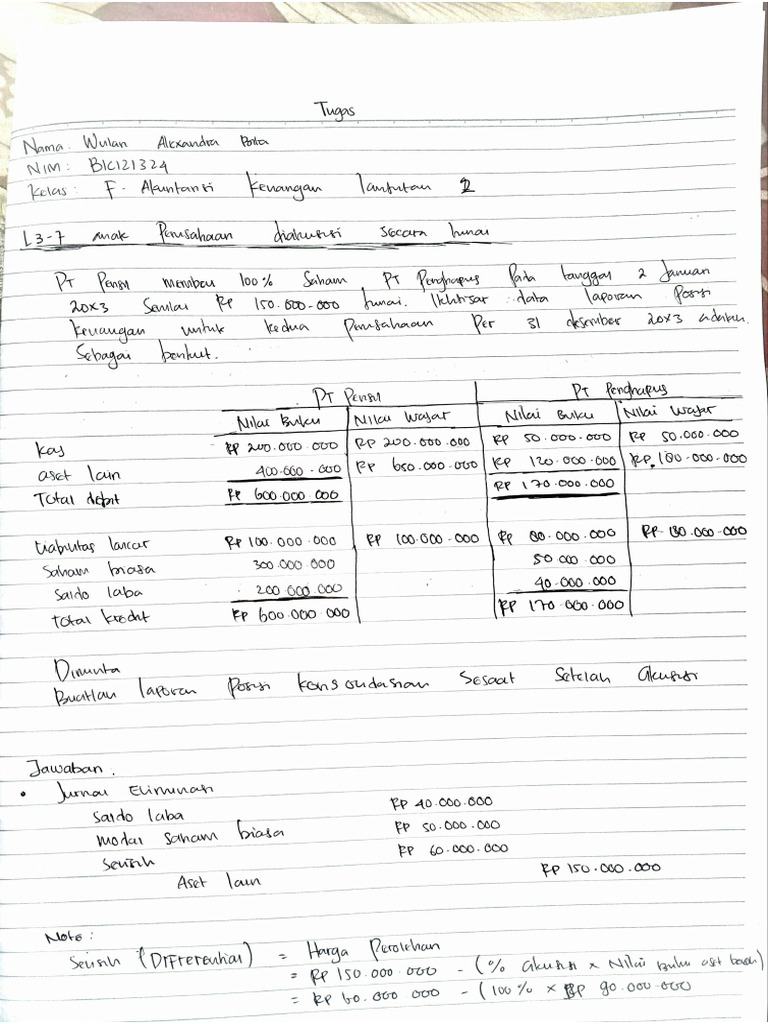 Tugas
Nama: Wulan Alexandra
NIM: B1C121324
Kelas: F - Akuntansi Keuangan lanjutan 2
L3-7 anak Perusahaan diakuisisi secara tunai
PT Pensil membeli 100% Saham PT Penghapus Pada tanggal 2 Januari
20x3 Senilai Rp 150.000.000 tunai. Ikhtisar data laporan Posisi
keuangan untuk kedua Perusahaan Per 31 desember 20x3 adalah
Sebagai berikut.
PT Pensil PT Penghapus
Nilai Buku Nilai Wajar Nilai Buku Nilai Wajar
Kas Rp 200.000.000 Rp 200.000.000 Rp 50.000.000 Rp 50.000.000
aset lain 400.000.000 Rp 650.000.000 Rp 120.000.000 Rp. 180.000.000
Total debit Rp 600.000.000 Rp 170.000.000
Liabilitas lancar Rp 100.000.000 Rp 100.000.000 Rp 80.000.000 Rp 80.000.000
Saham biasa 300.000.000 50.000.000
Saldo laba 200.000.000 40.000.000
Total kredit Rp 600.000.000 Rp 170.000.000
Diminta
Buatlah laporan Posisi Konsolidasian Sesaat Setelah Akuisisi
Jawaban.
• Jurnal Eliminasi
Saldo laba Rp 40.000.000
modal saham biasa Rp 50.000.000
Selisih Rp 60.000.000
Aset lain Rp 150.000.000
Note:
Selisih (Differential) = Harga Perolehan
= Rp 150.000.000 - (% akuisisi x Nilai Buku aset bersih)
= Rp 60.000.000 - (100% x Rp 90.000.000